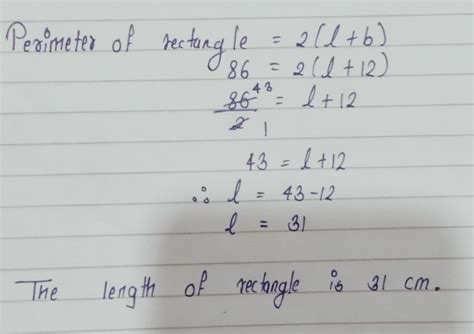 Perimeter of rectangle = 2(l+b)
86 = 2(l+12)
86 43 = l+12
2 1
43 = l+12
∴ l = 43-12
l = 31
The length of rectangle is 31 cm.